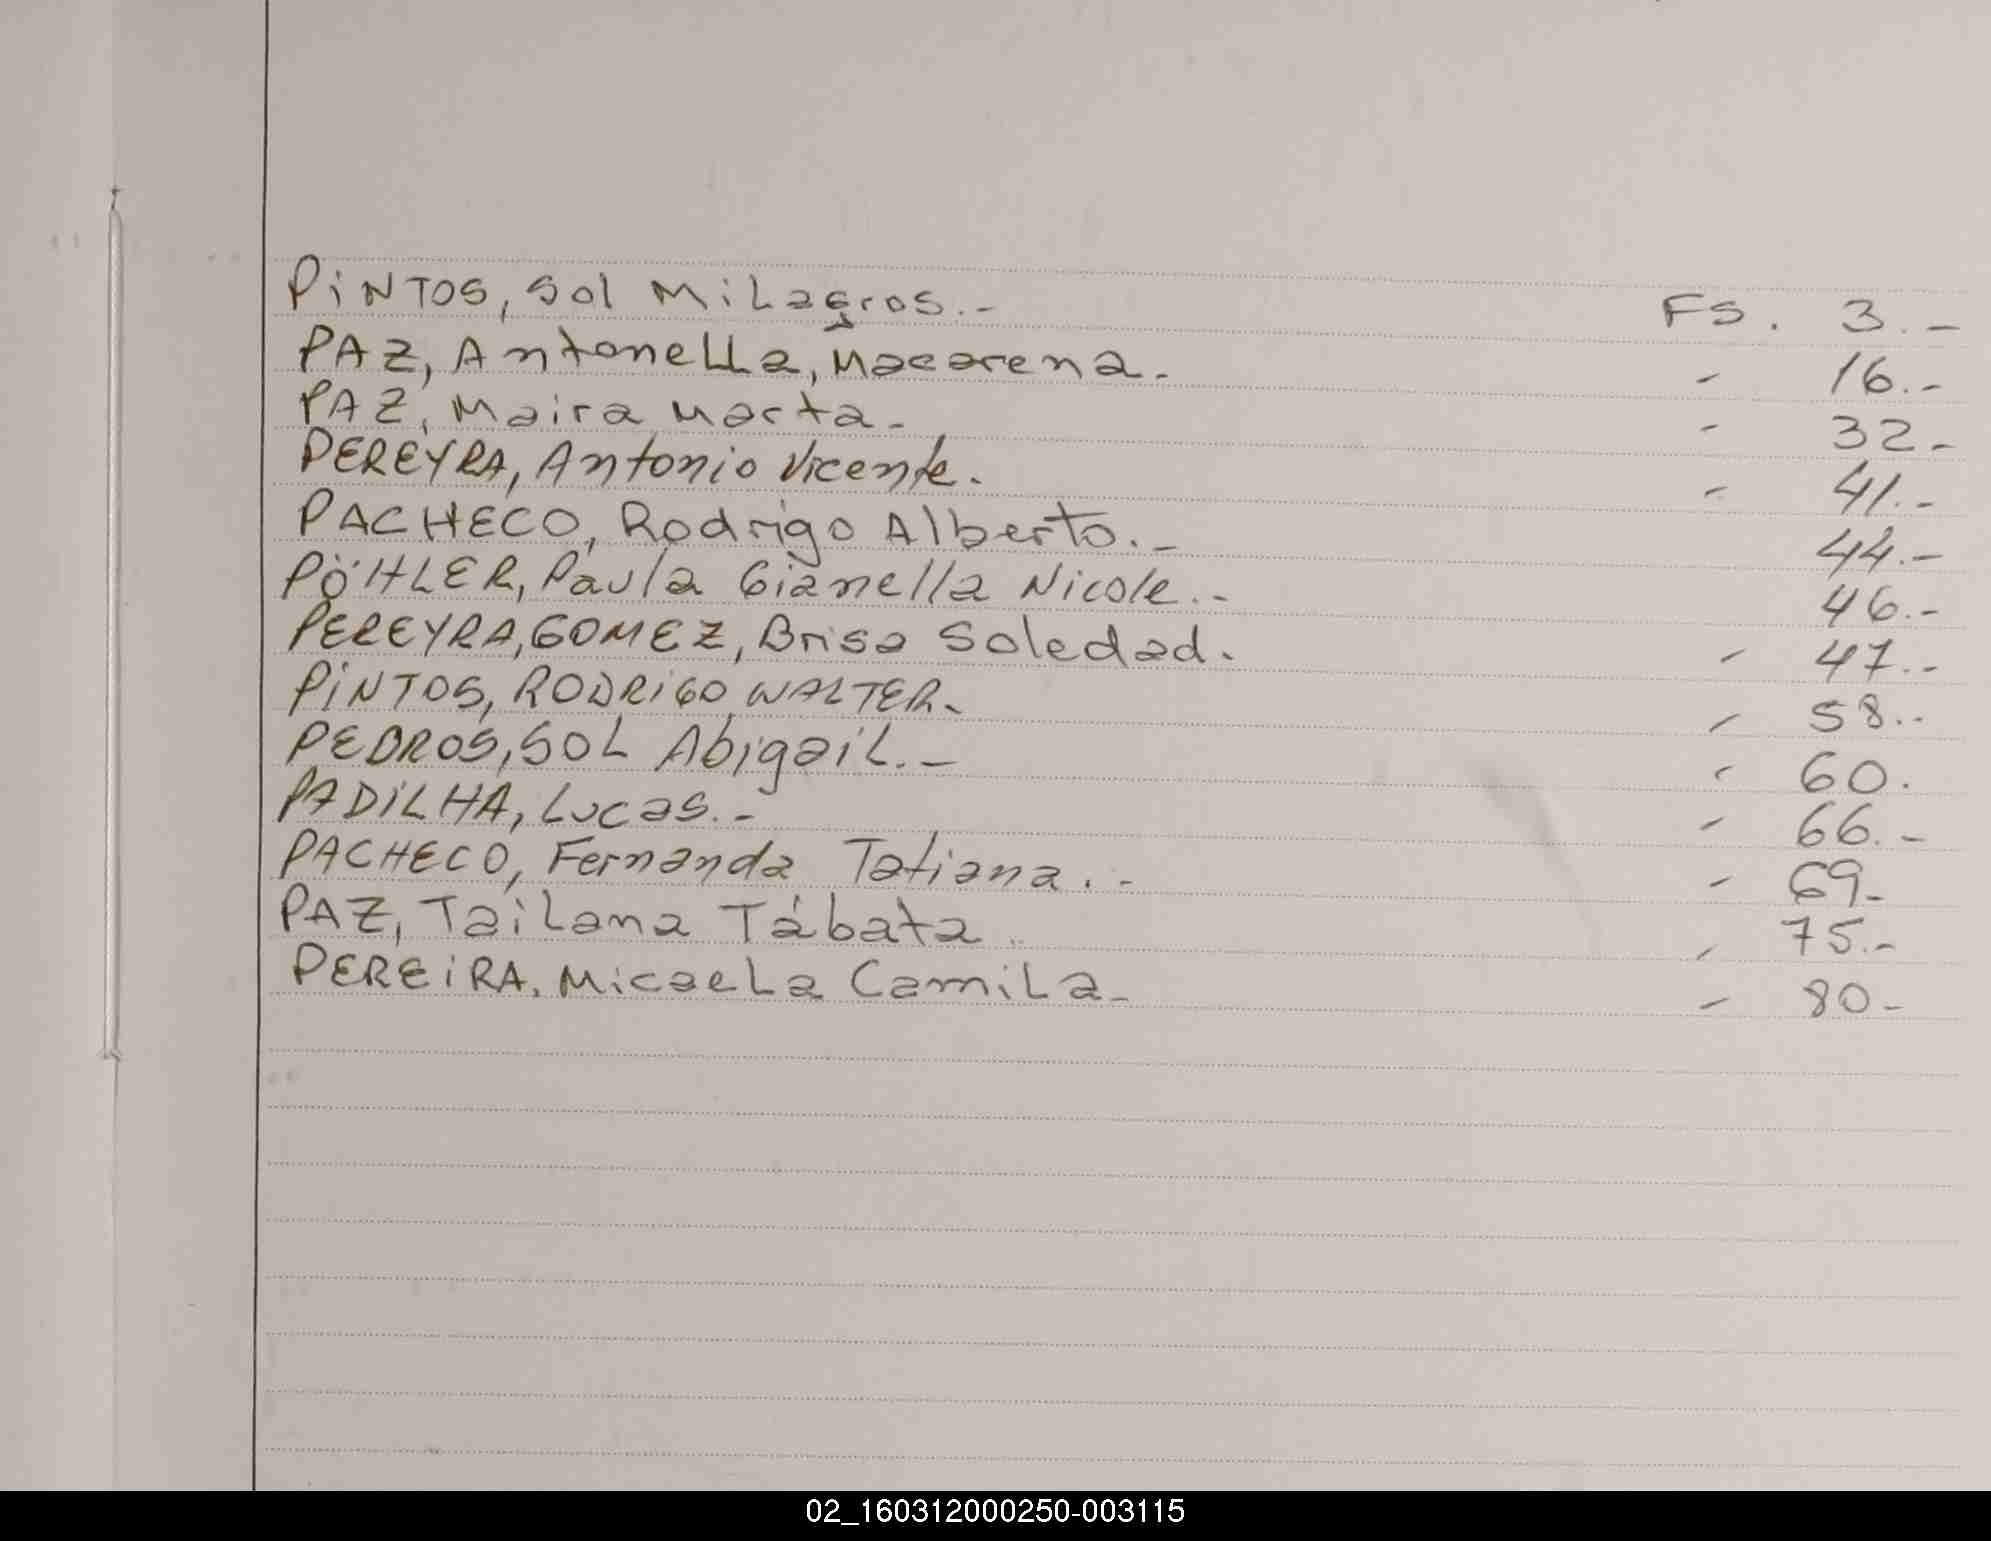 PiNTOS, Sol MiLagros.- FS. 3.-
PAZ, Antonella, Macarena.- - 16.-
PAZ, Maira Marta.- - 32-
PEREYRA, Antonio Vicente. - 41.-
PACHECO, Rodrigo Alberto.- 44.-
PÖHLER, Paula Gianella Nicole.- 46.-
PEREYRA, GOMEZ, Brisa Soledad. - 47.-
PiNTOS, RODRiGO WALTER.- - 58.-
PEDROS, SOL AbigaiL.- - 60.
PADiLHA, Lucas.- - 66.-
PACHECO, Fernanda Tatiana.- - 69-
PAZ, TaiLana Tábata. - 75.-
PEREiRA, MicaeLa CamiLa- - 80-
02_160312000250-003115